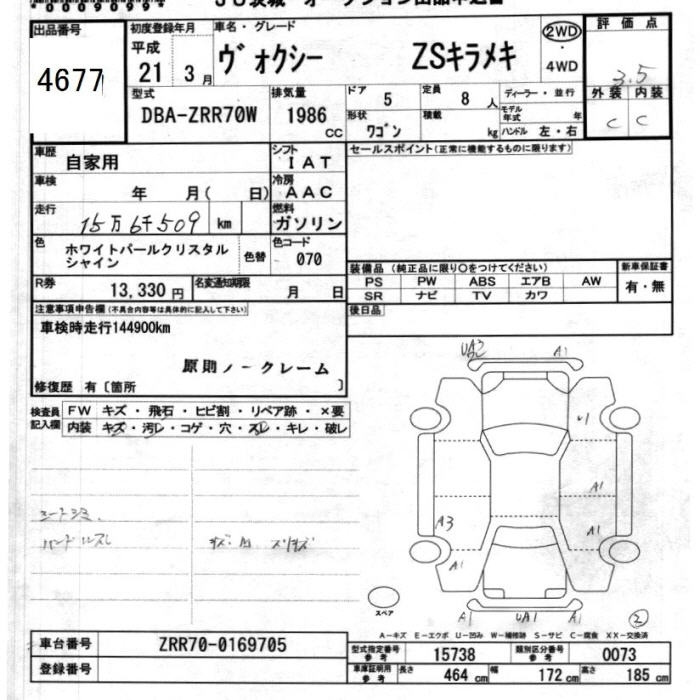 00090994
JU茨城 オークション出品申込書
出品番号 初度登録年月 車名・グレード 評価点
4677 平成 21 年 3 月 ヴォクシー ZSキラメキ 2WD ・ 4WD 3.5
型式 排気量 ドア 定員 ディーラー・並行 外装 内装
DBA-ZRR70W 1986 cc 5 8 人 モデル年式 年 C C
形状 ワゴン 積載 kg ハンドル 左・右
車歴 自家用 シフト IAT セールスポイント(正常に機能するものに限ります)
車検 年 月( 日) 冷房 AAC
走行 15万6千509 km 燃料 ガソリン
色 ホワイトパールクリスタル 色替 色コード
シャイン 070
装備品(純正品に限り○をつけてください) 新車保証書
R券 13,330 円 名変通知期限 月 日 PS PW ABS エアB AW 有・無
SR ナビ TV カワ
注意事項申告欄(不具合内容等は具体的に記入して下さい) 後日品
車検時走行144900km
原則ノークレーム
修復歴 有〔箇所 〕
UA2 A1
検査員 FW キズ・飛石・ヒビ割・リペア跡・×要
記入欄 内装 キズ・汚レ・コゲ・穴・スレ・キレ・破レ
U1
A1
シートシミ
A3 A1
ハンドルスレ
A1
スペア
A1 UA1 A1 2
A-キズ E-エクボ U-凹み W-補修跡 S-サビ C-腐食 XX-交換済
車台番号 ZRR70-0169705 型式指定番号 参考 15738 類別区分番号 参考 0073
登録番号 車庫証明用 参考 長さ 464 cm 幅 172 cm 高さ 185 cm